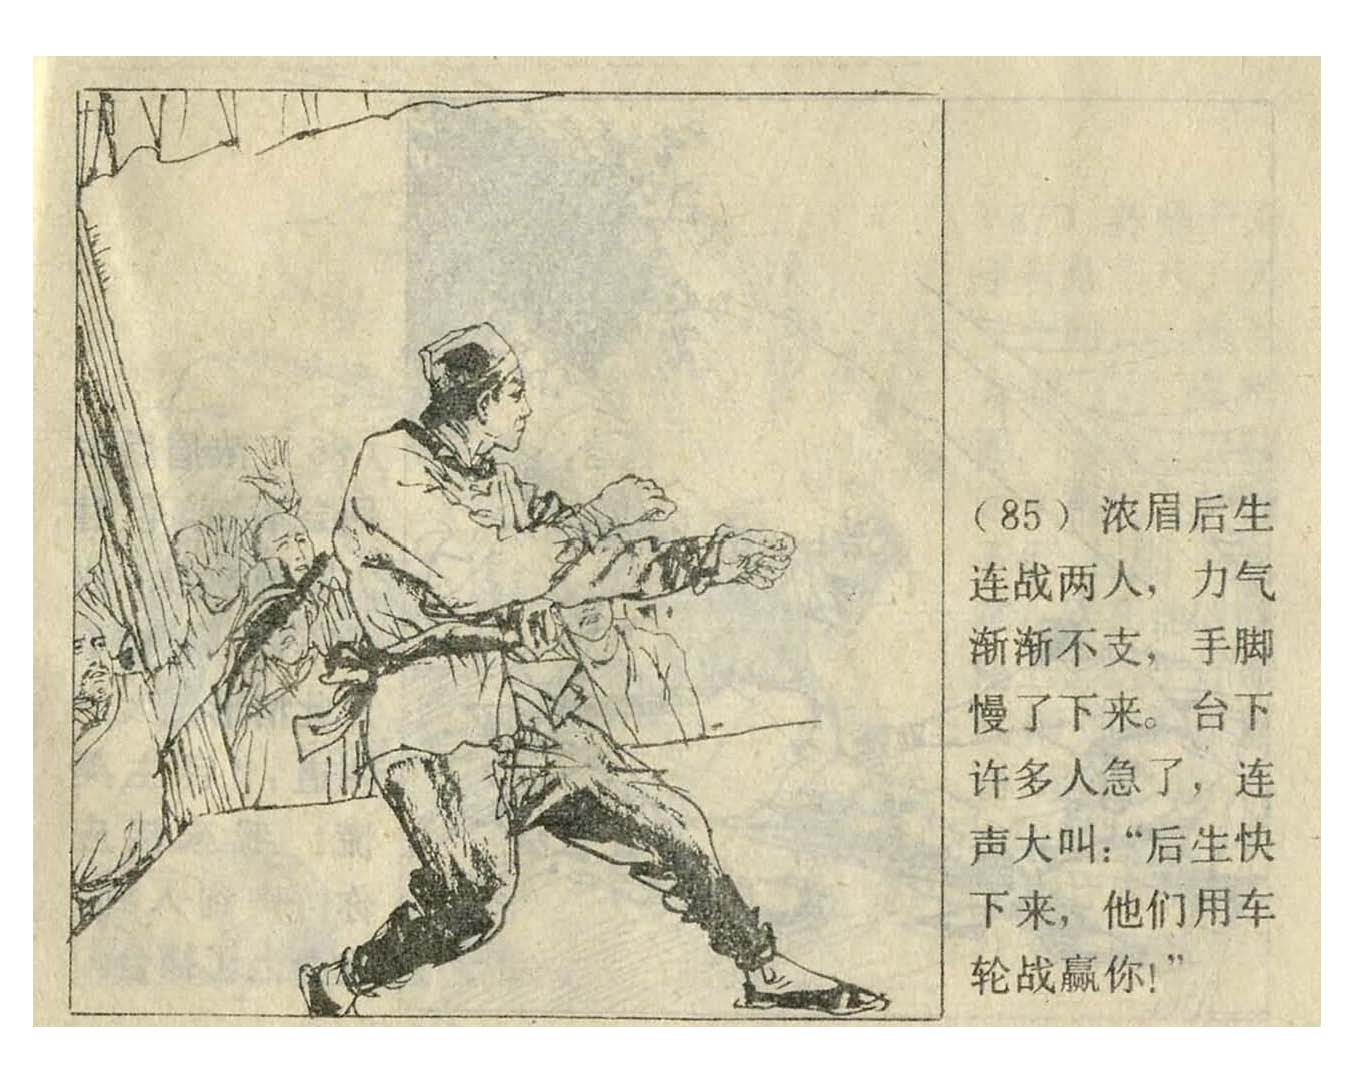 （85）浓眉后生
连战两人，力气
渐渐不支，手脚
慢了下来。台下
许多人急了，连
声大叫：“后生快
下来，他们用车
轮战赢你！”